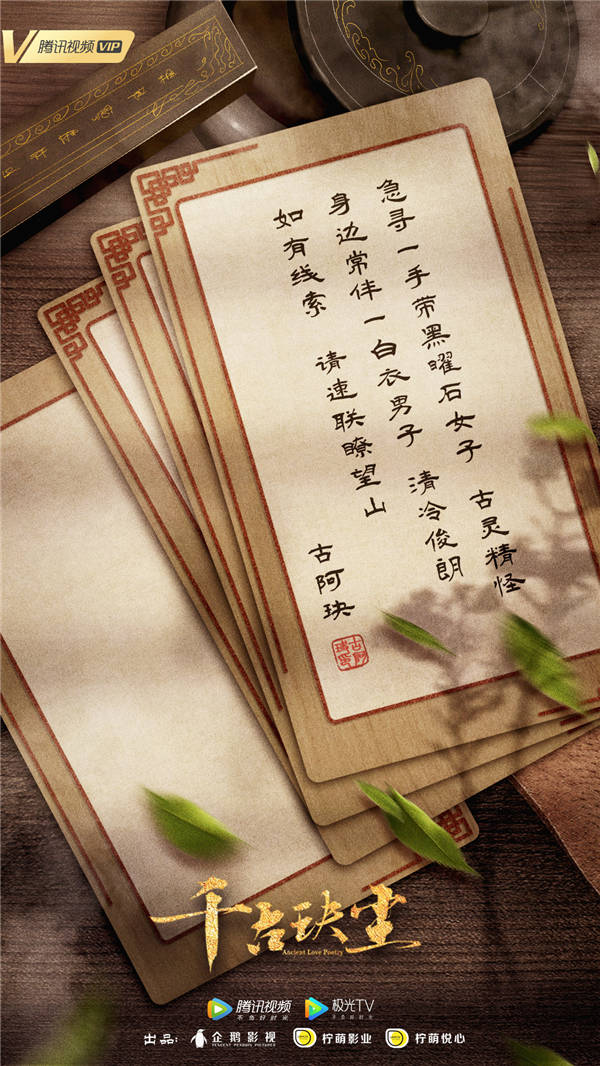 腾讯视频 VIP
急寻一手带黑曜石女子 古灵精怪
身边常伴一白衣男子 清冷俊朗
如有线索 请速联瞭望山
古阿玦
千古玦尘
Ancient Love Poetry
腾讯视频
不负好时光
极光TV
出品:
企鹅影视
TENCENT PENGUIN PICTURES
柠萌影业
柠萌悦心